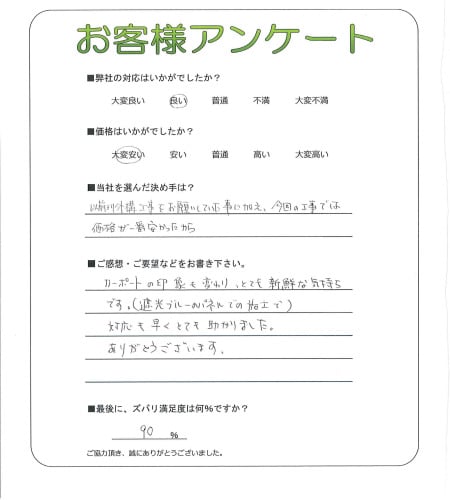 お客様アンケート
■弊社の対応はいかがでしたか？
大変良い 良い 普通 不満 大変不満
■価格はいかがでしたか？
大変安い 安い 普通 高い 大変高い
■当社を選んだ決め手は？
以前外構工事をお願いしていた事に加え、今回の工事では
価格が一番安かったから
■ご感想・ご要望などをお書き下さい。
カーポートの印象も変わり、とても新鮮な気持ち
です。(遮光ブルーのパネルでの施工で)
対応も早くとても助かりました。
ありがとうございます。
■最後に、ズバリ満足度は何%ですか？
90 %
ご協力頂き、誠にありがとうございました。